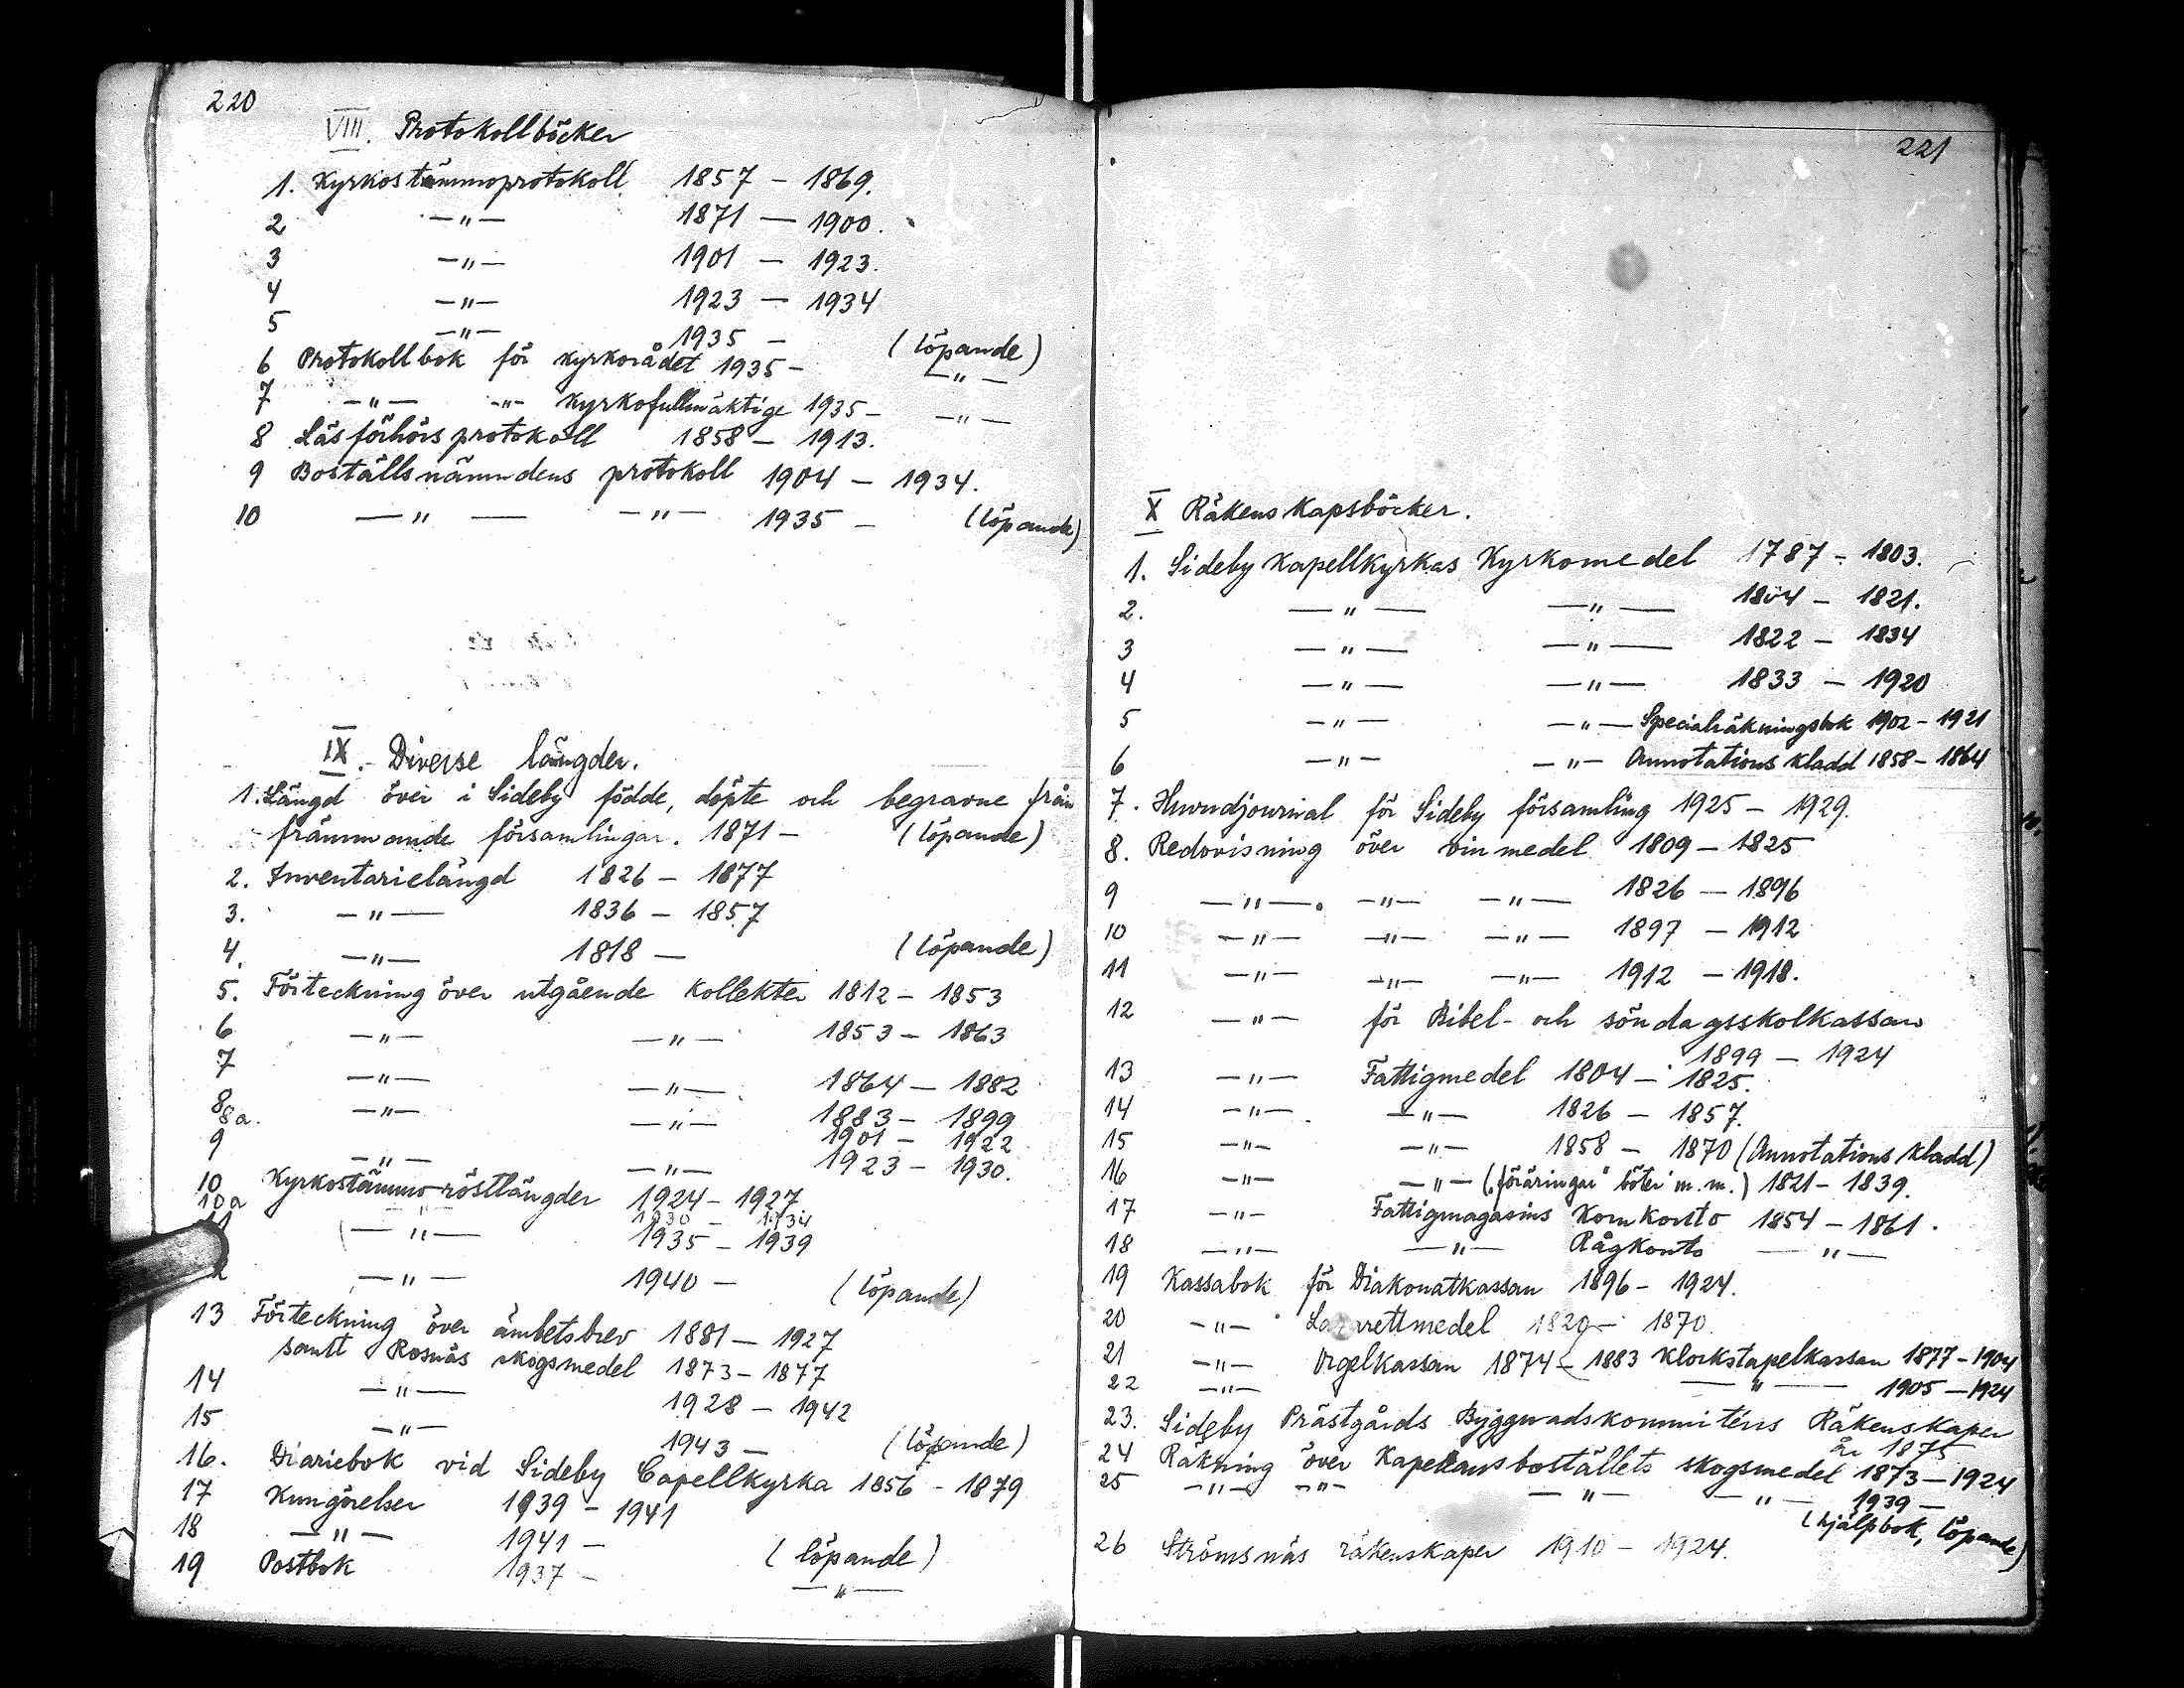 220
VIII. Protokollböcker
1. Kyrkostämmoprotokoll 1857 – 1869.
2 –„– 1871 – 1900.
3 –„– 1901 – 1923.
4 –„– 1923 – 1934
5 –„– 1935 – (löpande)
6 Protokollbok för kyrkorådet 1935 – –„–
7 –„– –„– kyrkofullmäktige 1935 – –„–
8 Läsförhörsprotokoll 1858 – 1913.
9 Boställsnämndens protokoll 1904 – 1934.
10 –„– –„– 1935 – (löpande)
IX. Diverse längder.
1. Längd över i Sideby födde, döpte och begravne från
främmande församlingar. 1871 – (löpande)
2. Inventarielängd 1826 – 1877
3. –„– 1836 – 1857
4. –„– 1818 – (löpande)
5. Förteckning över utgående kollekter 1812 – 1853
6 –„– –„– 1853 – 1863
7 –„– –„– 1864 – 1882
8 –„– –„– 1883 – 1899
8a. 1901 – 1922
9 –„– –„– 1923 – 1930.
10 Kyrkostämmo-röstlängder 1924 – 1927
10a 1930 – 1934
11 –„– 1935 – 1939
–„– 1940 – (löpande)
13 Förteckning över ämbetsbrev 1881 – 1927
samt Rosnäs skogsmedel 1873 – 1877
14 –„– 1928 – 1942
15 –„– 1943 – (löpande)
16. Diariebok vid Sideby Capellkyrka 1856 - 1879
17 Kungörelser 1939 – 1941
18 –„– 1941 – (löpande)
19 Postbok 1937 – –„–
221
X Räkenskapsböcker.
1. Sideby Kapellkyrkas Kyrkomedel 1787 – 1803.
2. –„– –„– 1804 – 1821.
3 –„– –„– 1822 – 1834
4 –„– –„– 1833 – 1920
5 –„– –„– Specialräkningsbok 1902 – 1921
6 –„– –„– Annotations kladd 1858 – 1864
7. Huvudjournal för Sideby församling 1925 – 1929.
8. Redovisning över vinmedel 1809 – 1825
9 –„– –„– –„– 1826 – 1896
10 –„– –„– –„– 1897 – 1912
11 –„– –„– –„– 1912 – 1918.
12 –„– för Bibel- och söndagsskolkassan
1899 – 1924
13 –„– Fattigmedel 1804 – 1825.
14 –„– –„– 1826 – 1857.
15 –„– –„– 1858 – 1870 (Annotations kladd)
16 –„– –„– („föräringar" böter m.m.) 1821 – 1839.
17 –„– Fattigmagasins Kornkonto 1854 – 1861.
18 –„– –„– Rågkonto –„–
19 Kassabok för Diakonatkassan 1896 – 1924.
20 –„– Lazarettmedel 1820 – 1870.
21 –„– Orgelkassan 1874 – 1883 Klockstapelkassan 1877 – 1904
22 –„– –„– 1905 – 1924
23. Sideby Prästgårds Byggnadskommiténs Räkenskaper
år 1875
24 Räkning över Kapellansboställets skogsmedel 1873 – 1924
25 –„– –„– –„– –„– 1939 –
(hjälpbok, löpande)
26 Strömsnäs räkenskaper 1910 – 1924.